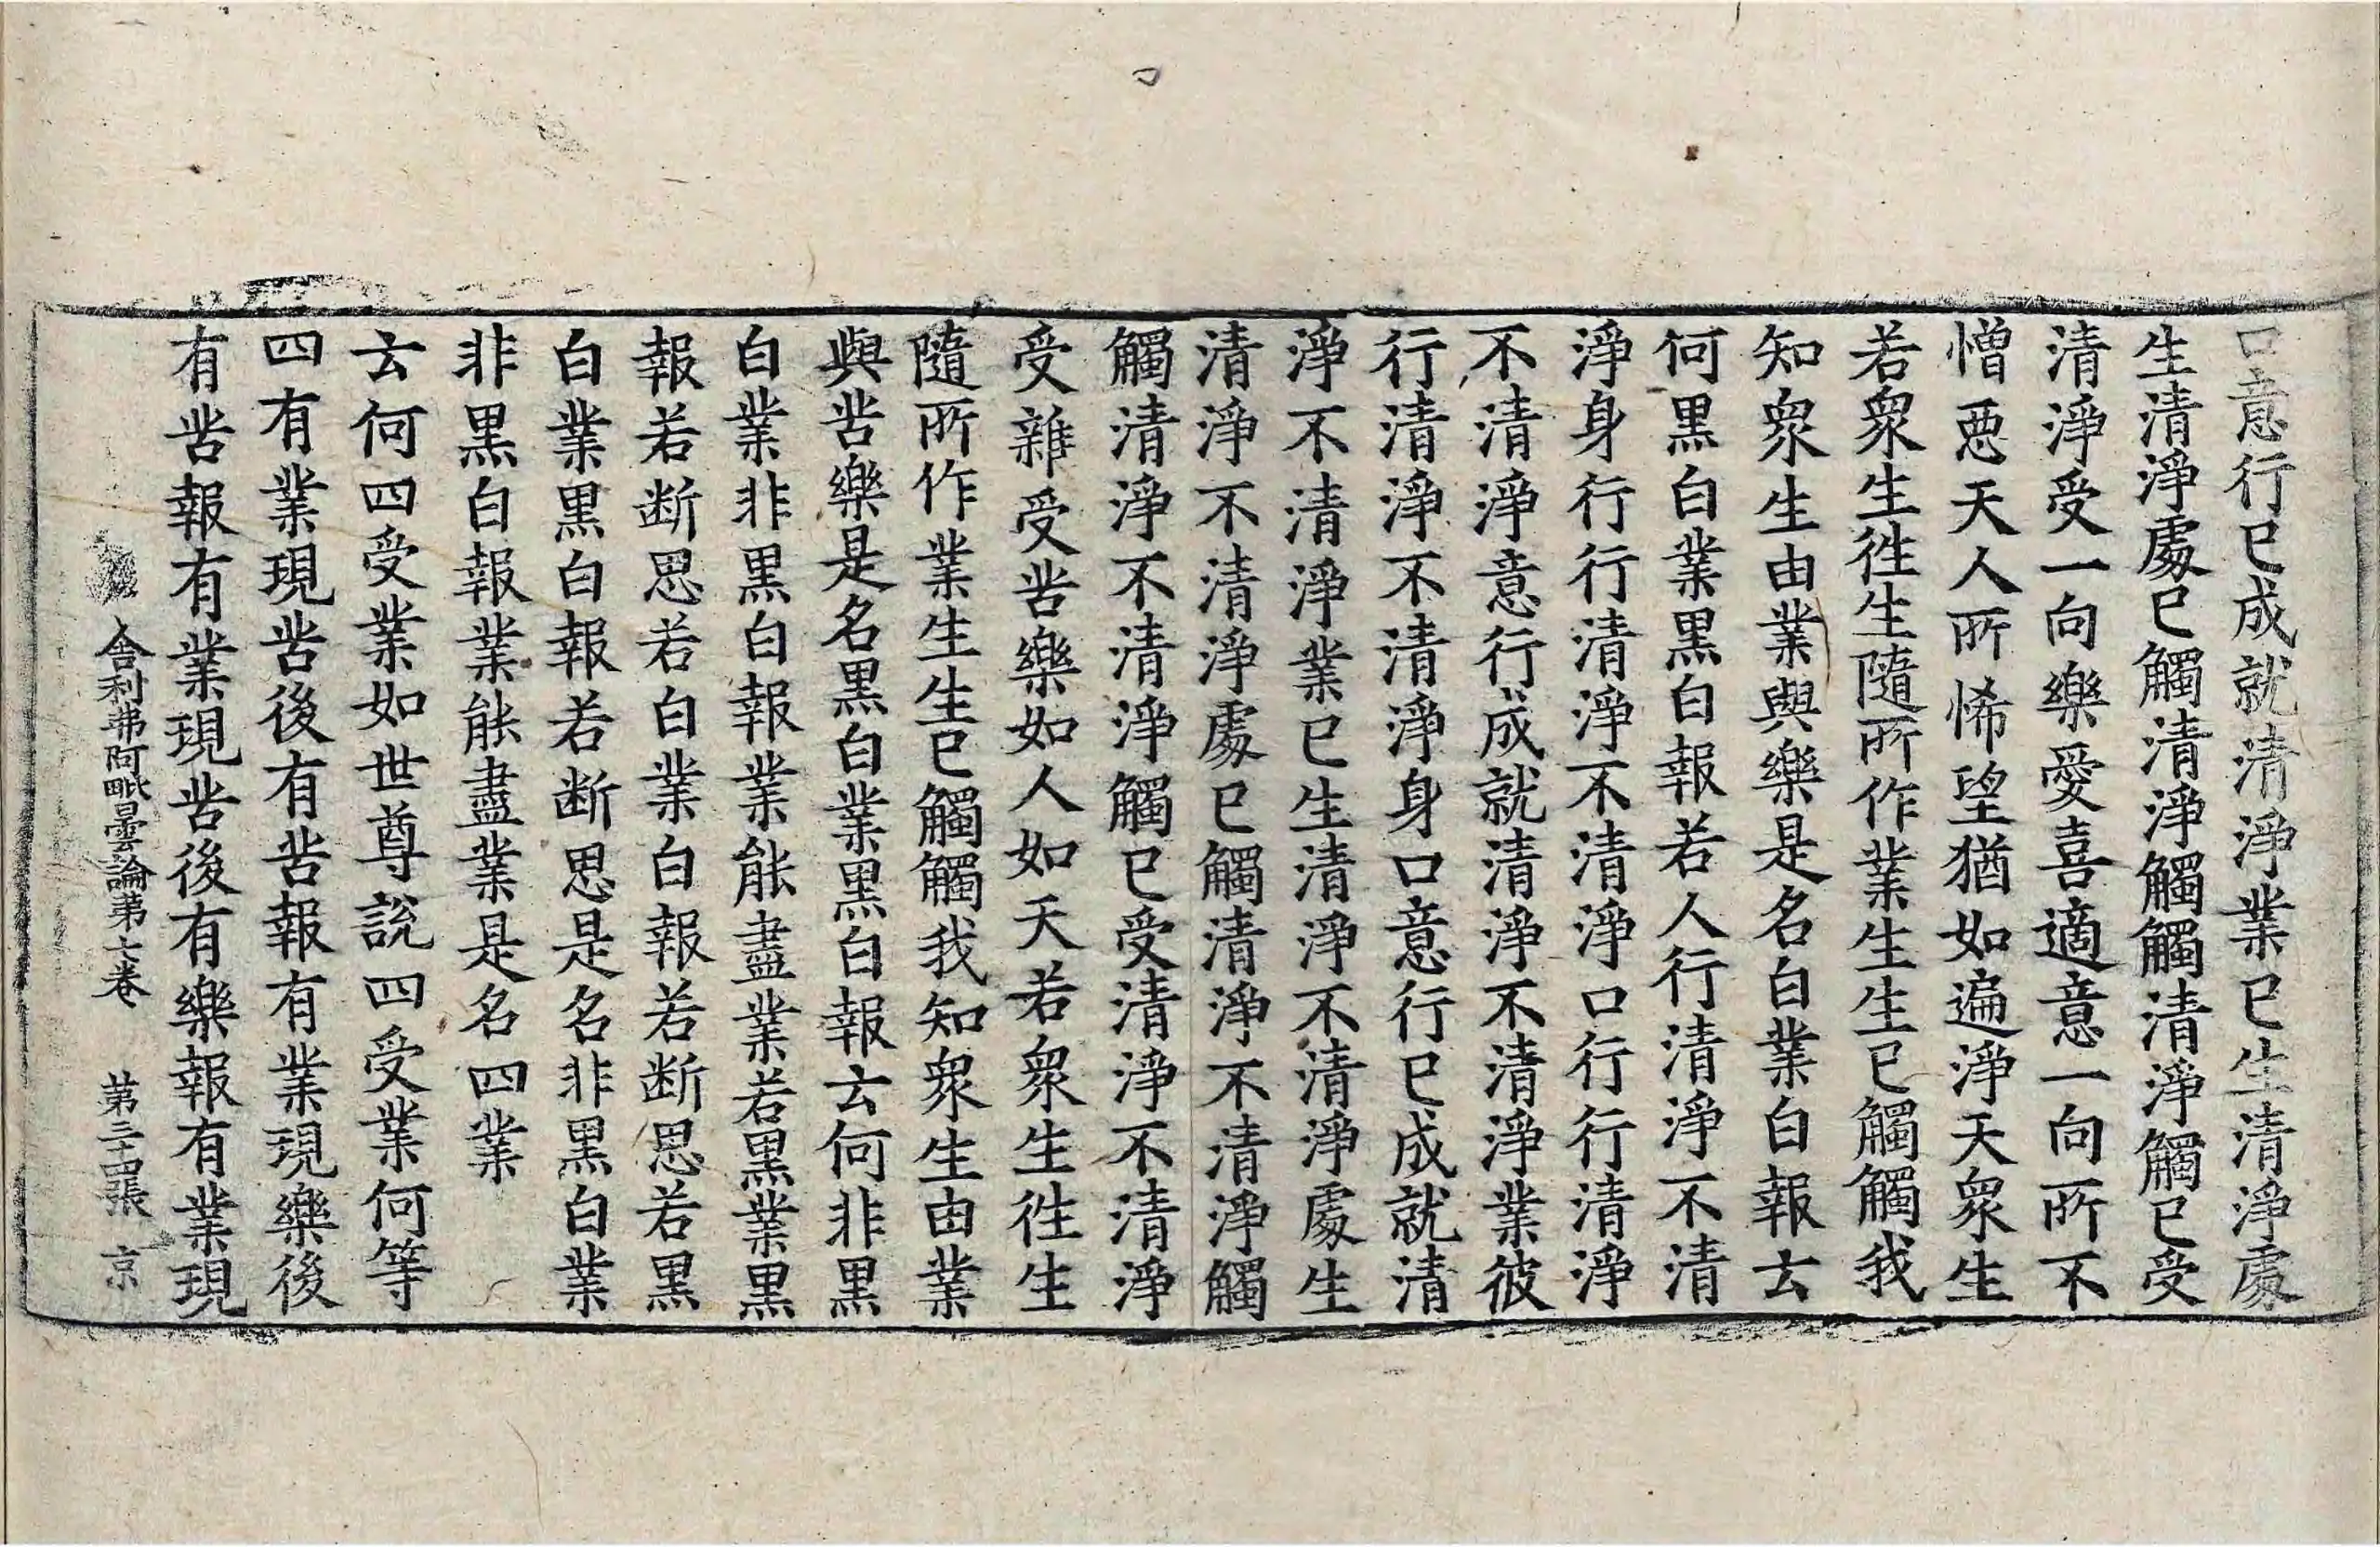 口意行已成就清淨業已生清淨處
生清淨處已觸清淨觸觸清淨觸已受
清淨受一向樂愛喜適意一向所不
憎惡天人所悕望猶如遍淨天眾生
若眾生徃生隨所作業生生已觸觸我
知眾生由業與樂是名白業白報云
何黑白業黑白報若人行清淨不清
淨身行行清淨不清淨口行行清淨
不清淨意行成就清淨不清淨業彼
行清淨不清淨身口意行已成就清
淨不清淨業已生清淨不清淨處生
清淨不清淨處已觸清淨不清淨觸
觸清淨不清淨觸已受清淨不清淨
受雜受苦樂如人如天若眾生徃生
隨所作業生生已觸觸我知眾生由業
與苦樂是名黑白業黑白報云何非黑
白業非黑白報業能盡業若黑業黑
報若断思若白業白報若断思若黑
白業黑白報若断思是名非黑白業
非黑白報業能盡業是名四業
云何四受業如世尊說四受業何等
四有業現苦後有苦報有業現樂後
有苦報有業現苦後有樂報有業現
舍利弗阿毗曇論第七卷 第三十四張 京